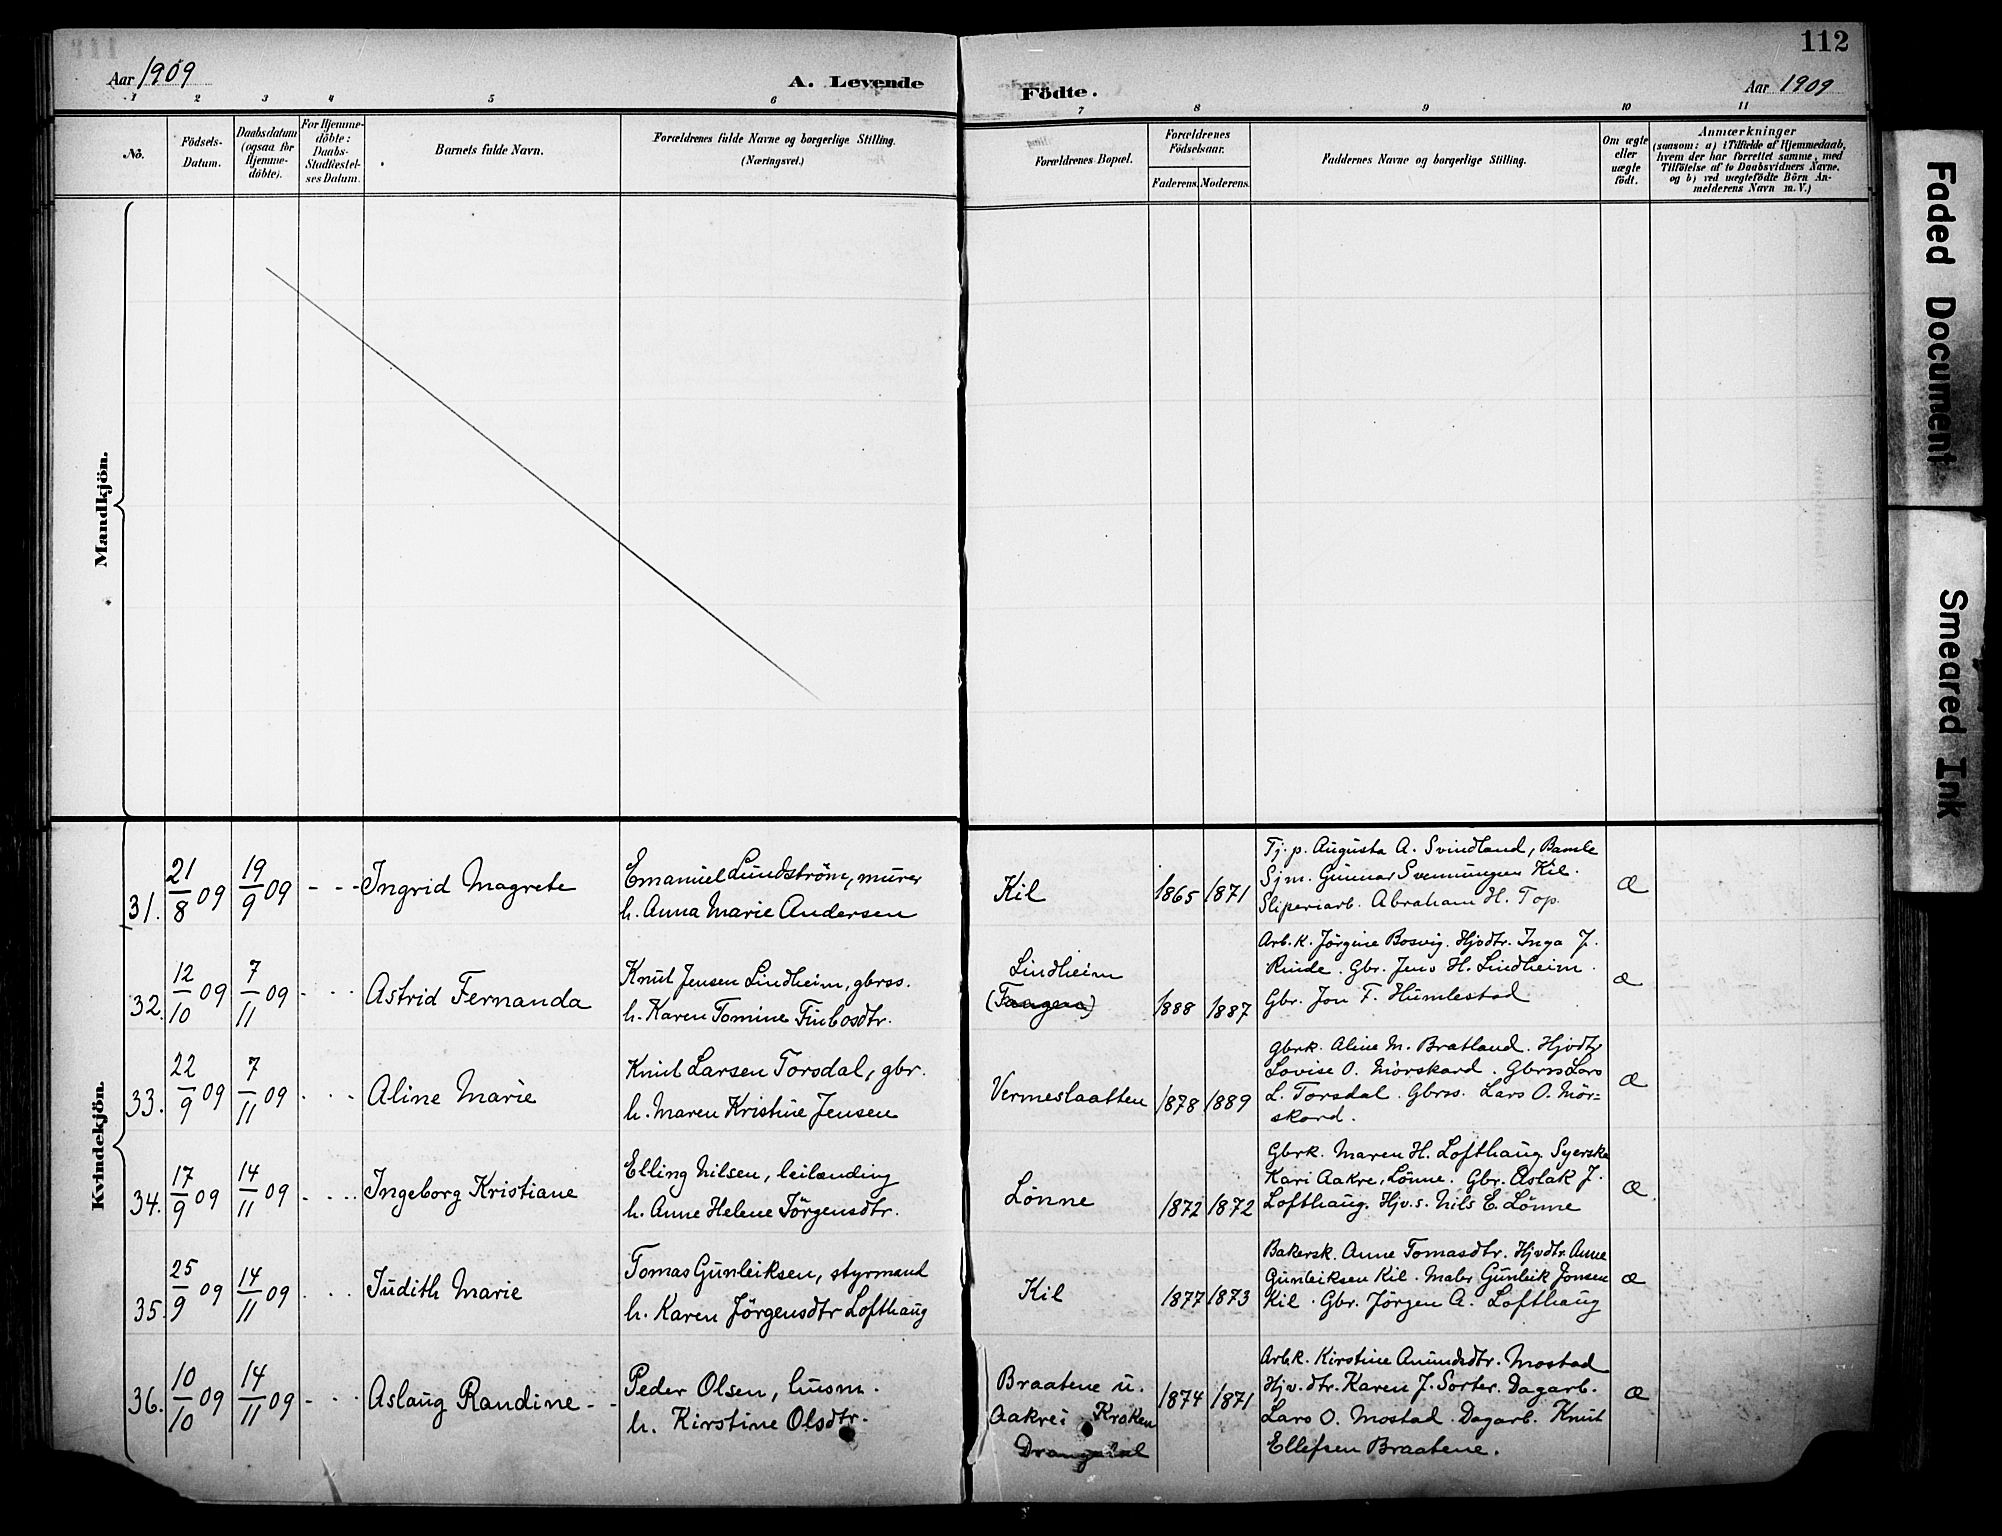 112
Aar 1909
A. Levende
Födte.
Aar 1909
1 2 3 4 5 6 7 8 9 10 11
No.
Födsels-
Datum.
Daabsdatum
(ogsaa for
Hjemme-
döbte).
For Hjemme-
döbte:
Daabs-
Stadfæstel-
ses Datum.
Barnets fulde Navn.
Forældrenes fulde Navne og borgerlige Stilling.
(Næringsvei.)
Forældrenes Bopæl.
Forældrenes
Födselsaar.
Faderens. Moderens.
Faddernes Navne og borgerlige Stilling.
Om ægte
eller
uægte
födt.
Anmærkninger
(saasom: a) i Tilfælde af Hjemmedaab,
hvem der har forrettet samme, med
Tilföielse af to Daabsvidners Navne,
og b) ved uægtefödte Börn An-
melderens Navn m. V.)
Mandkjön.
Kvindekjön.
31. 21/8 09 19/9 09 - - - Ingrid Magrete
Emanuel Lundström, murer
h. Anna Marie Andersen
Kil
1865 1871
Tj. p. Augusta A. Svindland, Bamle
Sjm. Gunnar Svenningsen Kil.
Sliperiarb. Abraham H. Top.
Æ
32. 12/10 09 7/11 09 - - - Astrid Fernanda
Knut Jensen Lindheim, gbrss.
h. Karen Tomine Finbosdtr.
Lindheim
(Tangen)
1888 1887
Arb.k. Jørgine Bosvig. Hjvdtr. Inga J.
Rinde. Gbr. Jens H. Lindheim.
Gbr. Jon F. Humlestad
Æ
33. 22/9 09 7/11 09 - - - Aline Marie
Knut Larsen Torsdal, gbr.
h. Maren Kristine Jensen
Vermeslaatten
1878 1889
Gbrk. Aline M. Bratland. Hjvdtr
Lovise O. Mörskard. Gbrss Lars
L. Torsdal. Gbrss. Lars O. Mör=
skard.
Æ
34. 17/9 09 14/11 09 - - - Ingeborg Kristiane
Elling Nilsen, leilænding
h. Anne Helene Jörgensdtr.
Lönne
1872 1872
Gbrk. Maren H. Lofthaug Syerske
Kari Aakre, Lönne. Gbr. Aslak J.
Lofthaug. Hjv.s. Nils E. Lönne
Æ.
35. 25/9 09 14/11 09 - - - Judith Marie
Tomas Gunleiksen, styrmand
h. Karen Jörgensdtr Lofthaug
Kil
1877 1873
Bakersk. Anne Tomasdtr. Hjvdtr Anne
Gunleiksen Kil. Maler Gunleik Jonsen
Kil. Gbr. Jörgen A. Lofthaug
Æ
36. 10/10 09 14/11 09 - - - Aslaug Randine - -
Peder Olsen, husm.
h. Kirstine Olsdtr.
Braatene u.
Aakre i Kroken
Drangedal
1874 1871
Arb.k. Kirstine Amundsdtr. Mostad
Hjv.dtr. Karen J. Sorter. Dagarb.
Lars O. Mostad. Dagarb. Knut
Ellefsen Braatene.
Æ
Faded Document
Smeared Ink